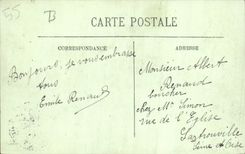 55
B
CARTE POSTALE
CORRESPONDANCE
ADRESSE
Bonjours, je vous embrasse
tous
Emile Renaud
Monsieur Albert
Renaud
chez Mr Simon
rue de l'Eglise
Sartrouville
Seine et Oise